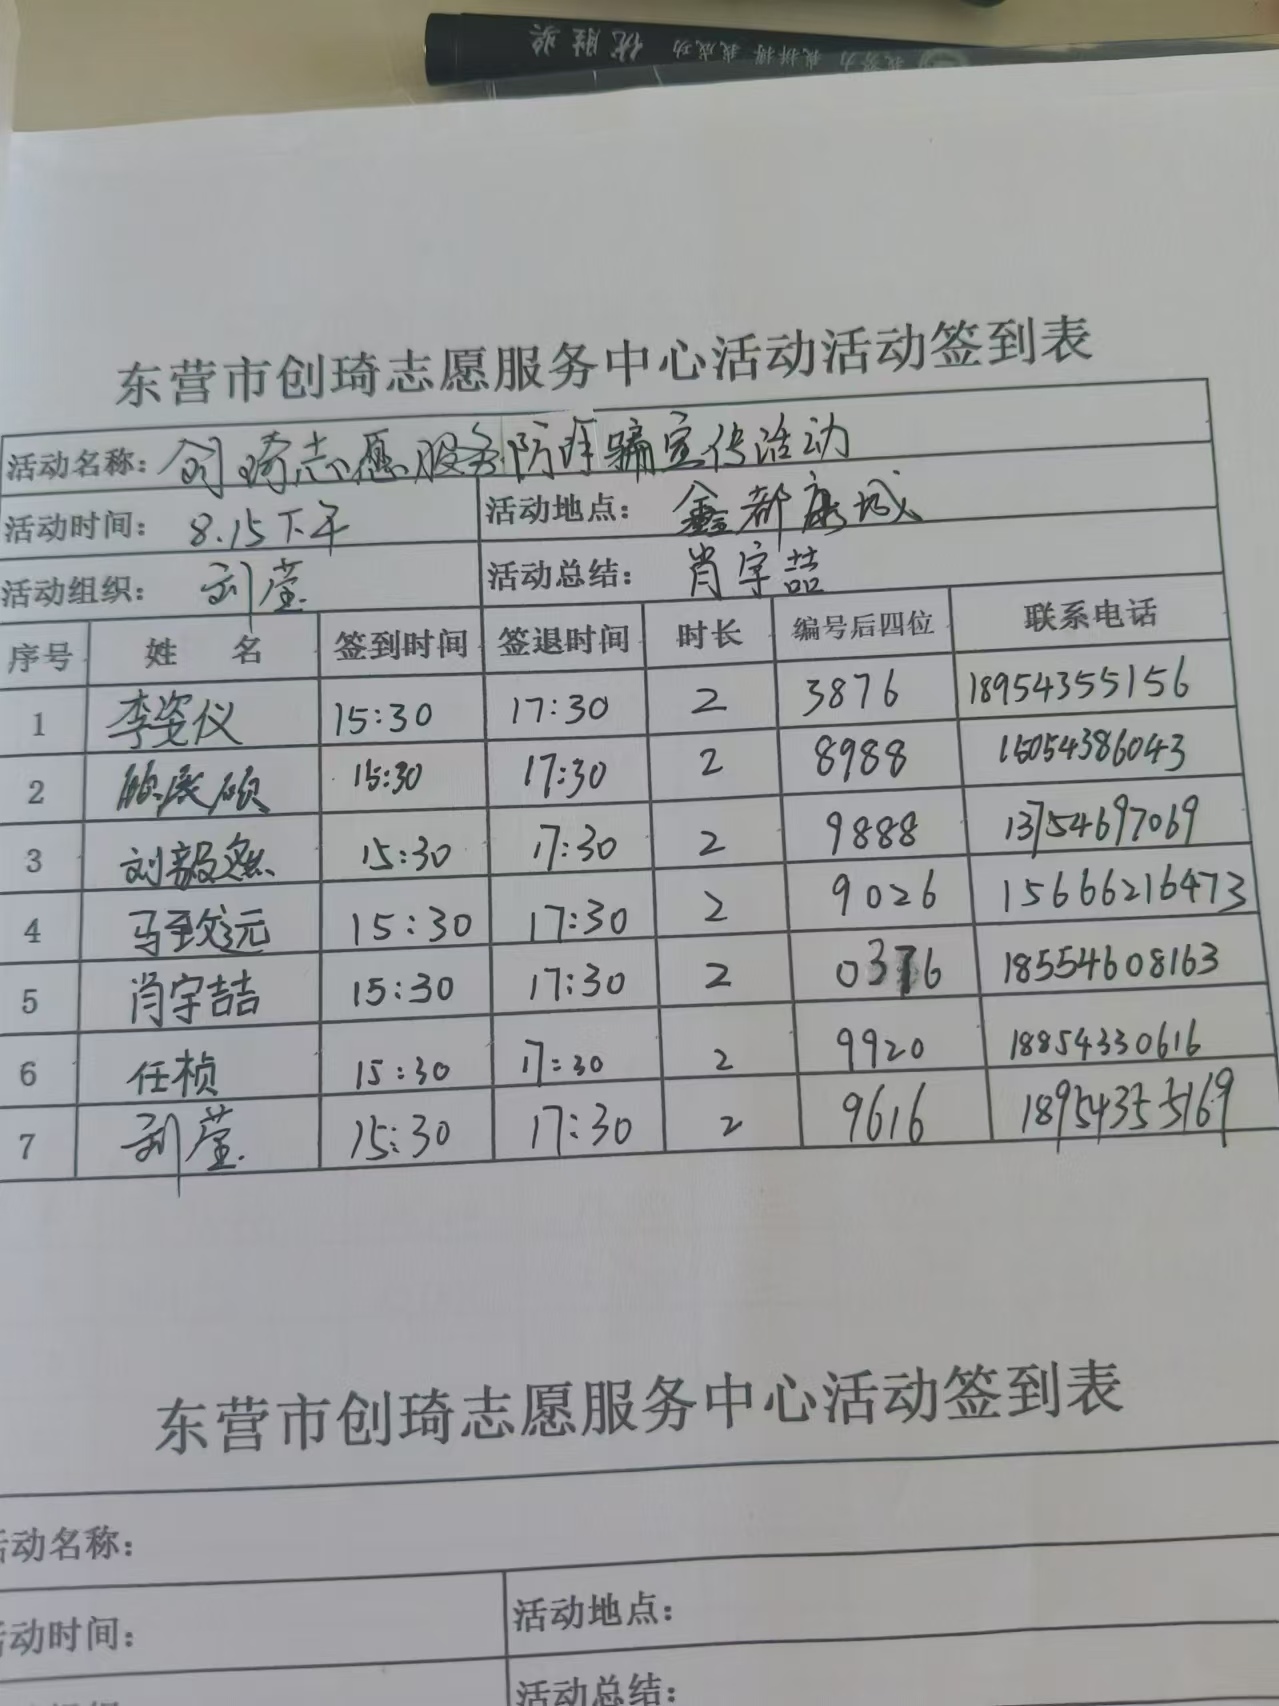 我努力 我拼搏 我成功 优胜奖
东营市创琦志愿服务中心活动活动签到表
活动名称：创琦志愿服务防诈骗宣传活动
活动时间：8.15下午 活动地点：鑫都康城
活动组织：刘莹 活动总结：肖宇喆
序号 姓名 签到时间 签退时间 时长 编号后四位 联系电话
1 李姿仪 15:30 17:30 2 3876 18954355156
2 15:30 17:30 2 8988 15054386043
3 刘毅然 15:30 17:30 2 9888 13754697069
4 马致远 15:30 17:30 2 9026 15666216473
5 肖宇喆 15:30 17:30 2 0376 18554608163
6 任桢 15:30 17:30 2 9920 18854330616
7 刘莹 15:30 17:30 2 9616 18954355169
东营市创琦志愿服务中心活动签到表
活动名称：
活动时间： 活动地点：
活动总结：